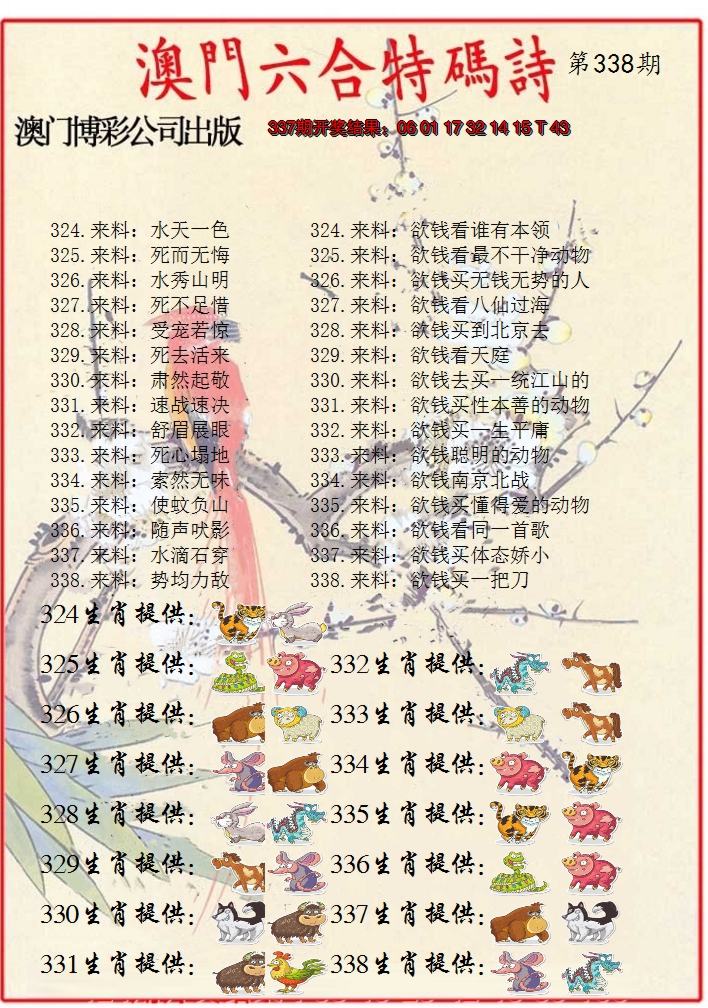 澳門六合特碼詩 第338期
澳门博彩公司出版 337期开奖结果：06 01 17 32 14 15 T 43
324.来料：水天一色 324.来料：欲钱看谁有本领
325.来料：死而无悔 325.来料：欲钱看最不干净动物
326.来料：水秀山明 326.来料：欲钱买无钱无势的人
327.来料：死不足惜 327.来料：欲钱看八仙过海
328.来料：受宠若惊 328.来料：欲钱买到北京去
329.来料：死去活来 329.来料：欲钱看天庭
330.来料：肃然起敬 330.来料：欲钱去买一统江山的
331.来料：速战速决 331.来料：欲钱买性本善的动物
332.来料：舒眉展眼 332.来料：欲钱买一生平庸
333.来料：死心塌地 333.来料：欲钱聪明的动物
334.来料：索然无味 334.来料：欲钱南京北战
335.来料：使蚊负山 335.来料：欲钱买懂得爱的动物
336.来料：随声吠影 336.来料：欲钱看同一首歌
337.来料：水滴石穿 337.来料：欲钱买体态娇小
338.来料：势均力敌 338.来料：欲钱买一把刀
324生肖提供：
325生肖提供： 332生肖提供：
326生肖提供： 333生肖提供：
327生肖提供： 334生肖提供：
328生肖提供： 335生肖提供：
329生肖提供： 336生肖提供：
330生肖提供： 337生肖提供：
331生肖提供： 338生肖提供：